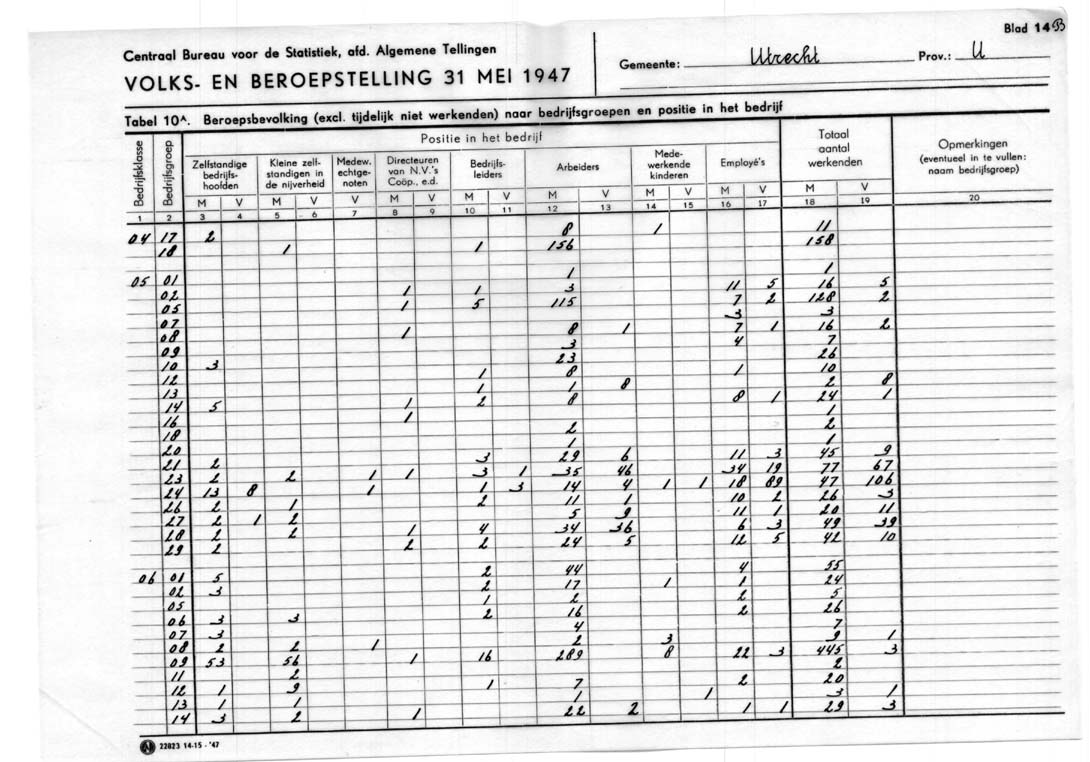 Blad 14 B
Centraal Bureau voor de Statistiek, afd. Algemene Tellingen
VOLKS- EN BEROEPSTELLING 31 MEI 1947
Gemeente: Utrecht Prov.: U
Tabel 10A. Beroepsbevolking (excl. tijdelijk niet werkenden) naar bedrijfsgroepen en positie in het bedrijf
Bedrijfsklasse
Bedrijfsgroep
Positie in het bedrijf
Zelfstandige bedrijfs- hoofden
Kleine zelf- standigen in de nijverheid
Medew. echtge- noten
Directeuren van N.V.'s Coöp., e.d.
Bedrijfs- leiders
Arbeiders
Mede- werkende kinderen
Employé's
Totaal aantal werkenden
Opmerkingen (eventueel in te vullen: naam bedrijfsgroep)
M V M V V M V M V M V M V M V M V
1 2 3 4 5 6 7 8 9 10 11 12 13 14 15 16 17 18 19 20
04 17 2 8 1 11
18 1 1 156 158
05 01 1 1
02 1 1 3 11 5 16 5
05 1 5 115 7 2 128 2
07 3 3
08 1 8 1 7 1 16 2
09 3 4 7
10 3 23 26
12 1 8 1 10
13 1 1 8 2 8
14 5 1 2 8 8 1 24 1
16 1 1
18 2 2
20 1 1
21 2 3 29 6 11 3 45 9
23 2 2 1 1 3 1 35 46 34 19 77 67
24 13 8 1 1 3 14 4 1 1 18 89 47 106
26 2 1 2 11 1 10 2 26 3
27 2 1 2 5 9 11 1 20 11
28 2 2 1 4 34 36 6 3 49 39
29 2 2 2 24 5 12 5 42 10
06 01 5 2 44 4 55
02 3 2 17 1 1 24
05 1 2 2 5
06 3 3 2 16 2 26
07 3 4 7
08 2 2 1 2 3 9 1
09 53 56 1 16 289 8 22 3 445 3
11 2 2
12 1 9 1 7 2 20
13 1 1 1 1 3 1
14 3 2 1 22 2 1 1 29 3
22823 14-15 - '47